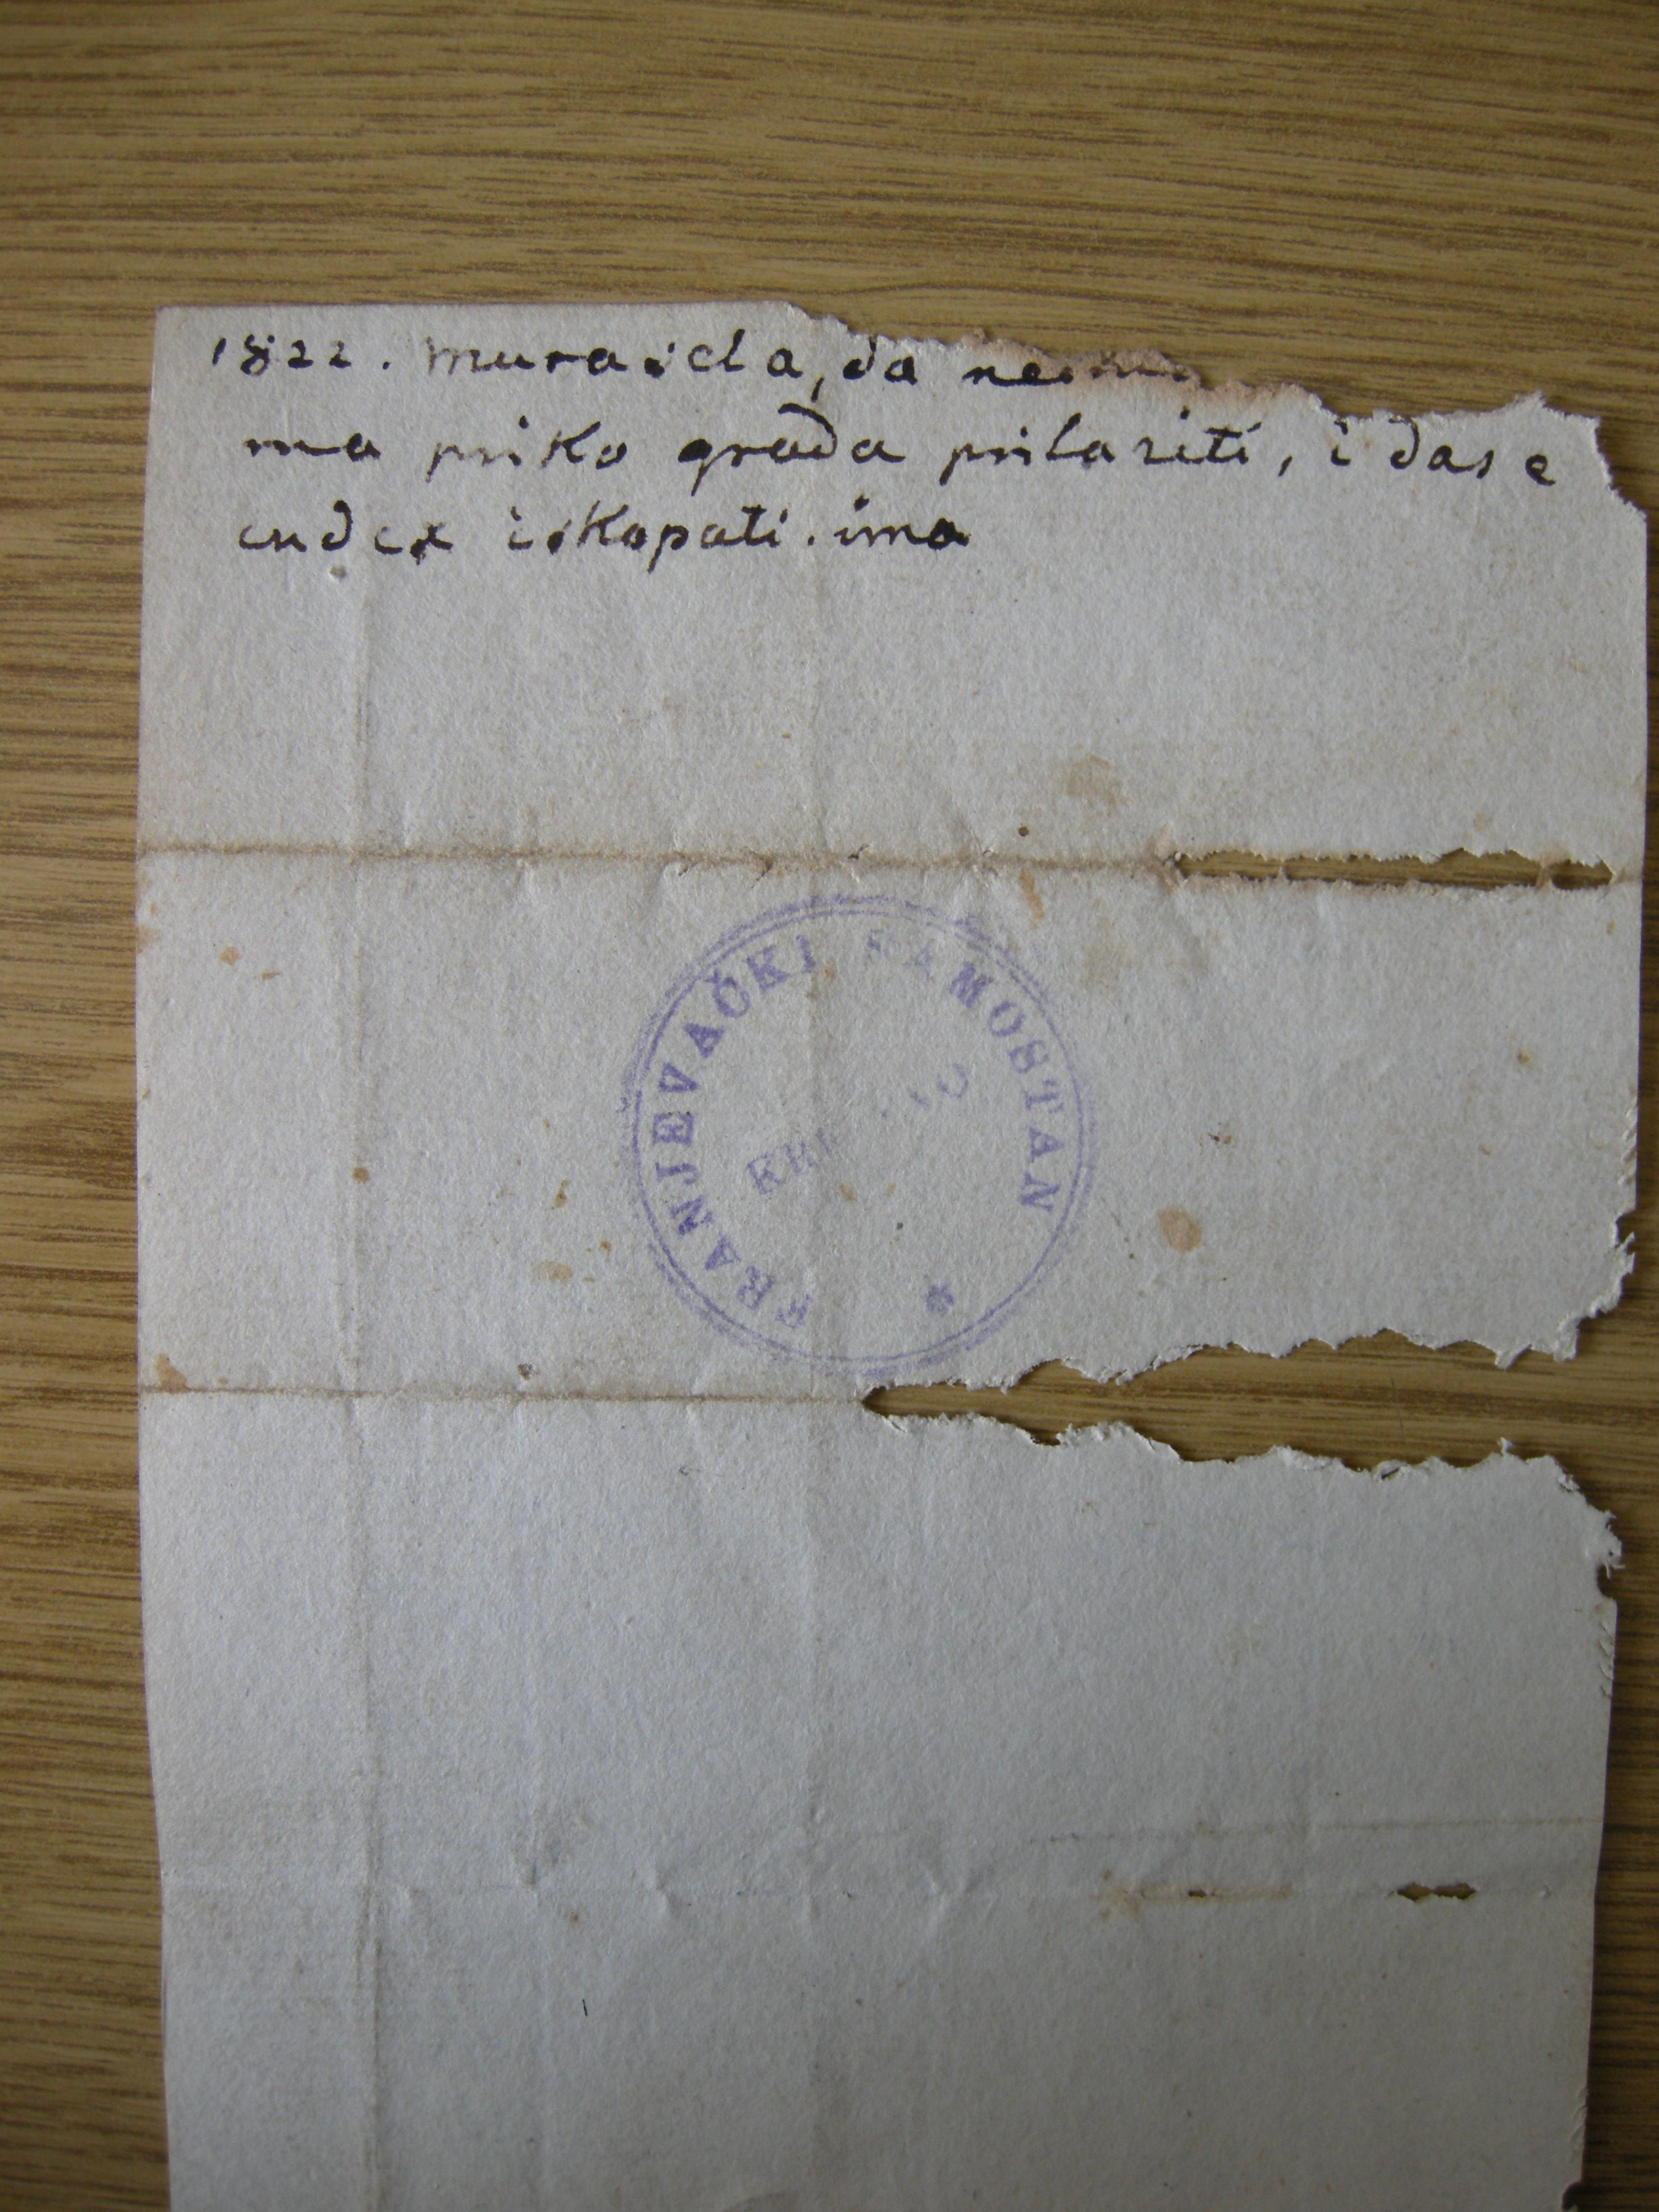 1822. murasela, da
ma priko grada prilaziti, i dase
endex iskopati. ima
FRANJEVAČKI SAMOSTAN